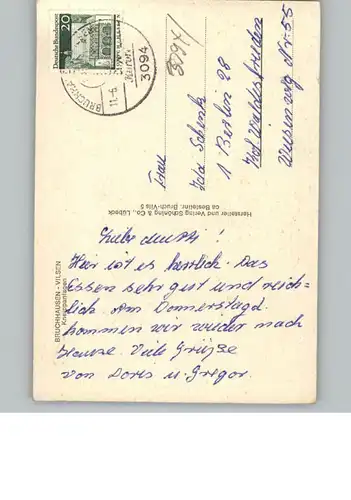 Deutsche Bundespost
20
BRUCHHAUSEN
11.-6.
3094
3094
Frau
Ida Schenk
1 Berlin 28
Kol Waldesfrieden
Wiesenweg Nr. 55
Hersteller und Verlag Schöning & Co., Lübeck
ca Bestellnr. Bruch-Vils 5
BRUCHHAUSEN - VILSEN
Liebe Mutti!
Hier ist es herrlich. Das
Essen sehr gut und reich-
lich. Am Donnerstag
kommen wir wieder nach
Hause. Viele Grüße
von Doris u. Gregor.